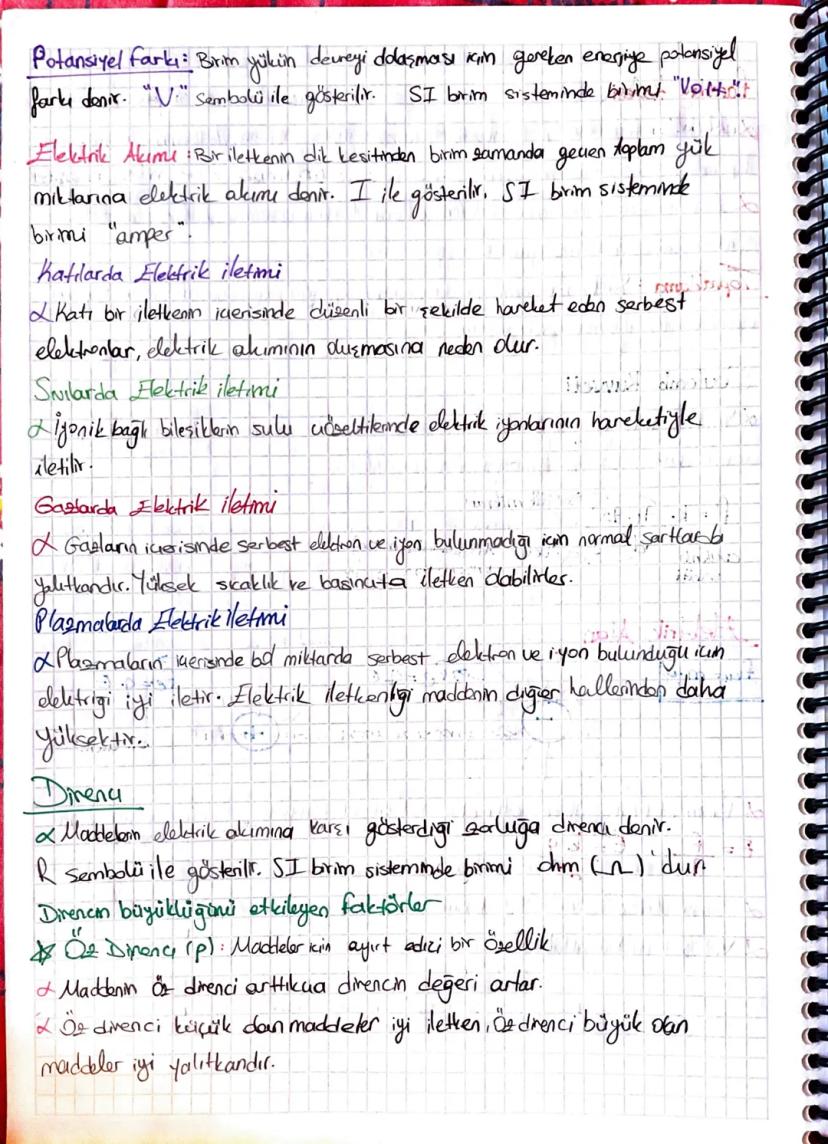 Potansiyel farkı: Birim yükün devreyi dolaşması için gereken enerjiye potansiyel
farkı denir. "V" Sembolü ile gösterilir. SI birim sisteminde birimi "Volt".
Elektrik Akımı: Bir iletkenin dik kesitinden birim zamanda geçen toplam yük
miktarına elektrik akımı denir. I ile gösterilir, SI birim sisteminde
birimi "amper".
Katılarda Elektrik iletimi
α Katı bir iletkenin içerisinde düzenli bir şekilde hareket eden serbest
elektronlar, elektrik akımının oluşmasına neden olur.
Sıvılarda Elektrik iletimi
α İyonik bağlı bileşiklerin sulu çözeltilerinde elektrik iyonlarının hareketiyle
iletilir.
Gazlarda Elektrik iletimi
α Gazların içerisinde serbest elektron ve iyon bulunmadığı için normal şartlarda
yalıtkandır. Yüksek sıcaklık ve basınçta iletken olabilirler.
Plazmalarda Elektrik iletimi
α Plazmaların içerisinde bol miktarda serbest elektron ve iyon bulunduğu için
elektriği iyi iletir. Elektrik iletkenliği maddenin diğer hallerinden daha
yüksektir.
Direnç
α Maddelerin elektrik akımına karşı gösterdiği zorluğa direnç denir.
R sembolü ile gösterilir. SI birim sisteminde birimi ohm (Ω)'dur
Direncin büyüklüğünü etkileyen faktörler
☆ Öz Direnç (ρ): Maddeler için ayırt edici bir özellik
α Maddenin öz direnci arttıkça direncin değeri artar.
α Öz direnci küçük olan maddeler iyi iletken, Öz direnci büyük olan
maddeler iyi yalıtkandır.